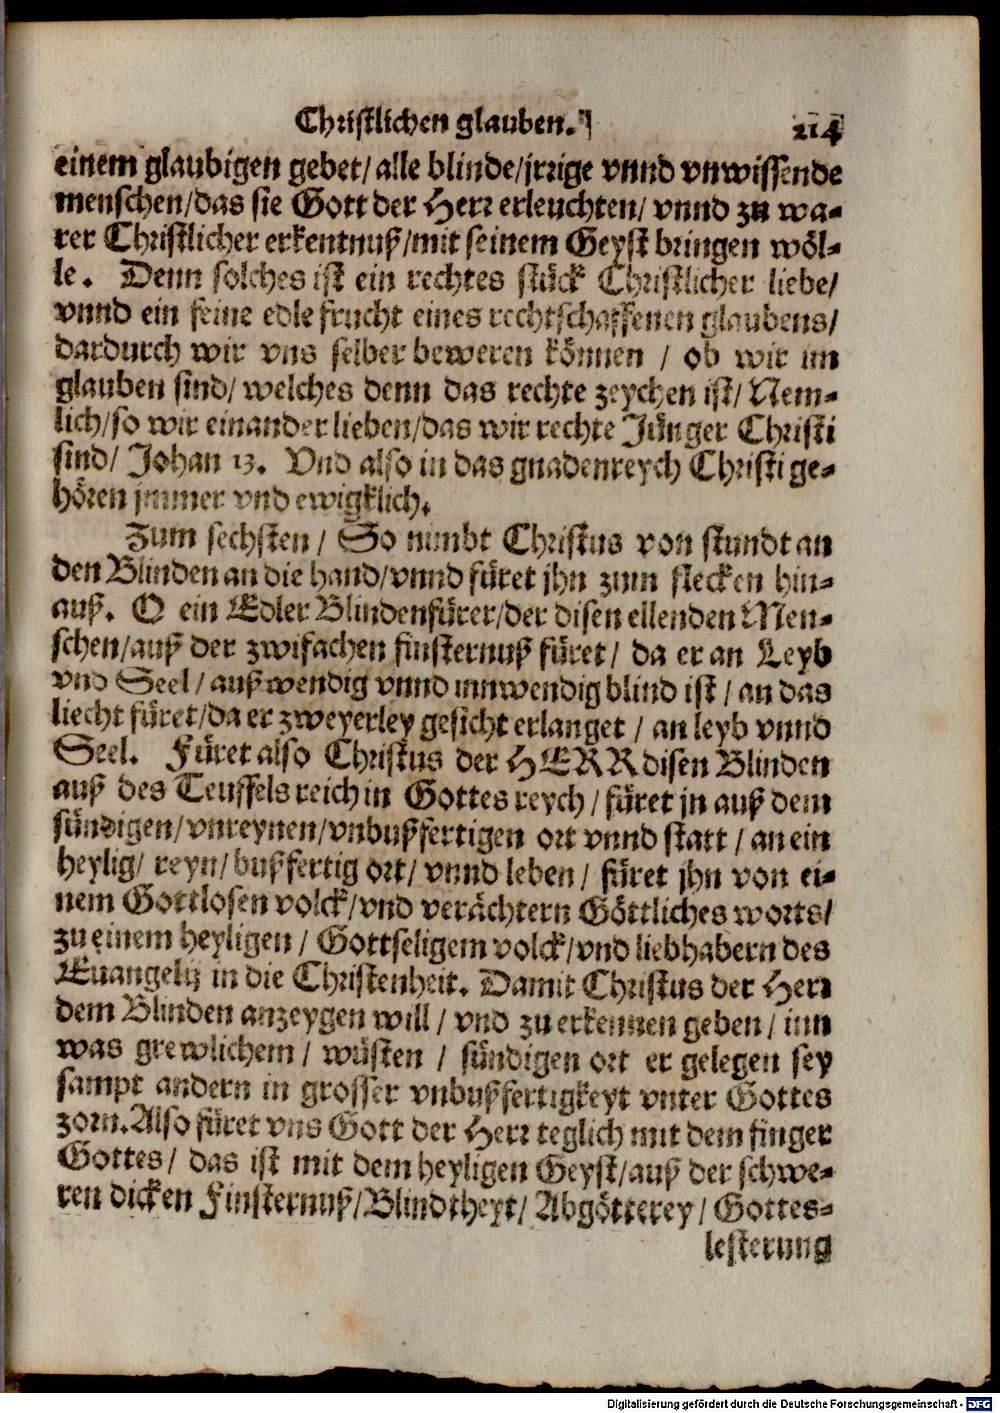 Christlichen glauben. 214
einem glaubigen gebet/ alle blinde/jrrige vnnd vnwissende
menschen/das sie Gott der Herr erleuchten/ vnnd zu wa-
rer Christlicher erkentnuß/mit seinem Geyst bringen wöl-
le. Denn solches ist ein rechtes stück Christlicher liebe/
vnnd ein feine edle frucht eines rechtschaffenen glaubens/
dardurch wir vns selber beweren können / ob wir im
glauben sind/ welches denn das rechte zeychen ist/ Nem-
lich/so wir einander lieben/das wir rechte Jünger Christi
sind/ Johan 13. Vnd also in das gnadenreych Christi ge-
hören jmmer vnd ewigklich.
Zum sechsten / So nimbt Christus von stundt an
den Blinden an die hand/vnnd füret jhn zum flecken hin-
auß. O ein Edler Blindenfürer/der disen ellenden Men-
schen/auß der zwifachen finsternuß füret/ da er an Leyb
vnd Seel / außwendig vnnd innwendig blind ist / an das
liecht füret/da er zweyerley gesicht erlanget / an leyb vnnd
Seel. Füret also Christus der HERR disen Blinden
auß des Teuffels reich in Gottes reych / füret jn auß dem
sündigen/vnreynen/vnbußfertigen ort vnnd statt / an ein
heylig/ reyn/ bußfertig ort/ vnnd leben / füret jhn von ei-
nem Gottlosen volck/vnd verächtern Göttliches worts/
zu einem heyligen / Gottseligem volck/vnd liebhabern des
Euangelij in die Christenheit. Damit Christus der Herr
dem Blinden anzeygen will / vnd zu erkennen geben / inn
was grewlichem / wüsten / sündigen ort er gelegen sey
sampt andern in grosser vnbußfertigkeyt vnter Gottes
zorn. Also füret vns Gott der Herr teglich mit dem finger
Gottes/ das ist mit dem heyligen Geyst/auß der schwe-
ren dicken Finsternuß/Blindtheyt/ Abgötterey / Gottes-
lesterung
Digitalisierung gefördert durch die Deutsche Forschungsgemeinschaft - DFG